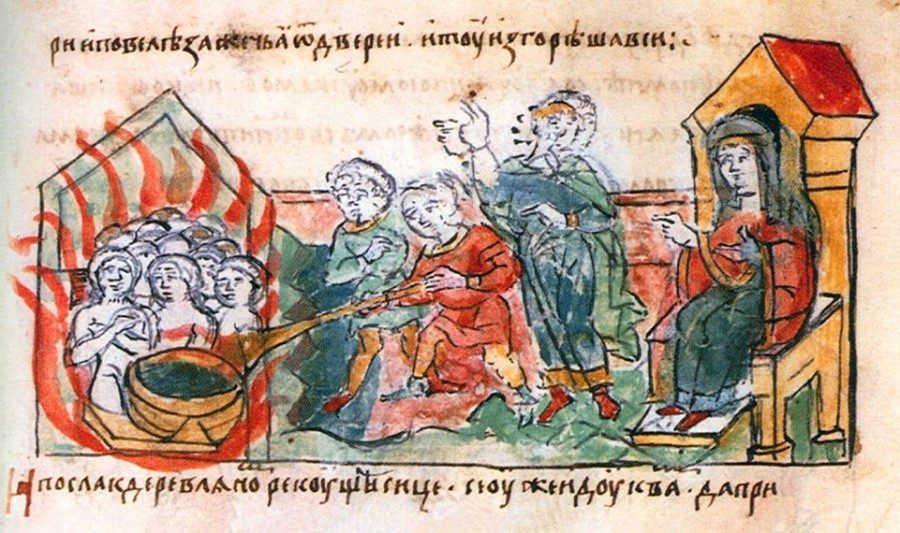 рни и повелѣ зажечьѧ ѿ двереи · и тоу изгорѣша вси:·
И посла к деревлѧно рекоущи сице · се оуже идоу к ва · да при